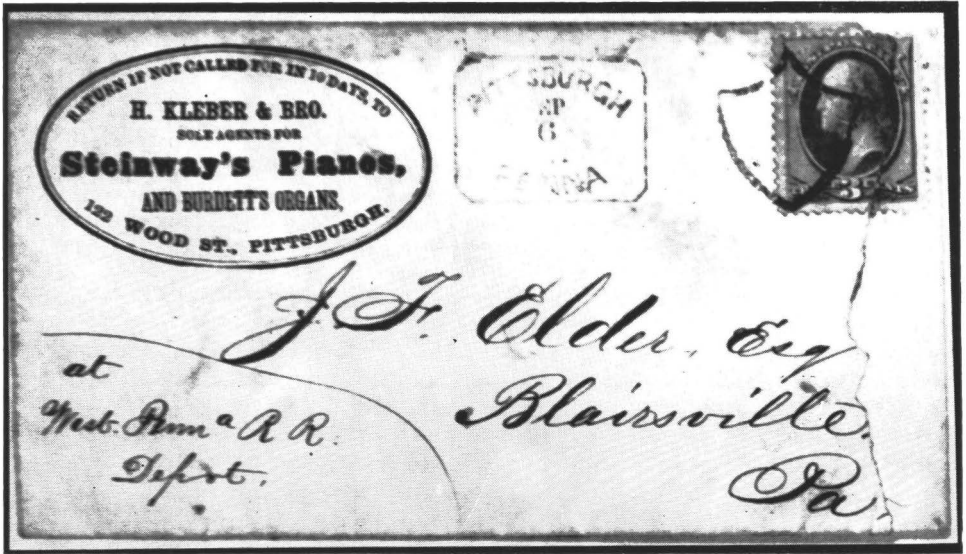 RETURN IF NOT CALLED FOR IN 10 DAYS, TO
H. KLEBER & BRO.
SOLE AGENTS FOR
Steinway's Pianos,
AND BURDETT'S ORGANS,
122 WOOD ST., PITTSBURGH.
PITTSBURGH
6
3
J. F. Elder, Esq
Blairsville
Pa
at
West. Penna R R.
Depot.